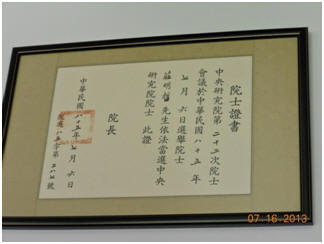 院士證書
中央研究院第二十二次院士
會議於中華民國八十五年
七月六日選舉院士
莊明哲先生依法當選中央
研究院院士 此證
院長
中華民國八十五年七月六日
八五字第二八七號
07.16.2013